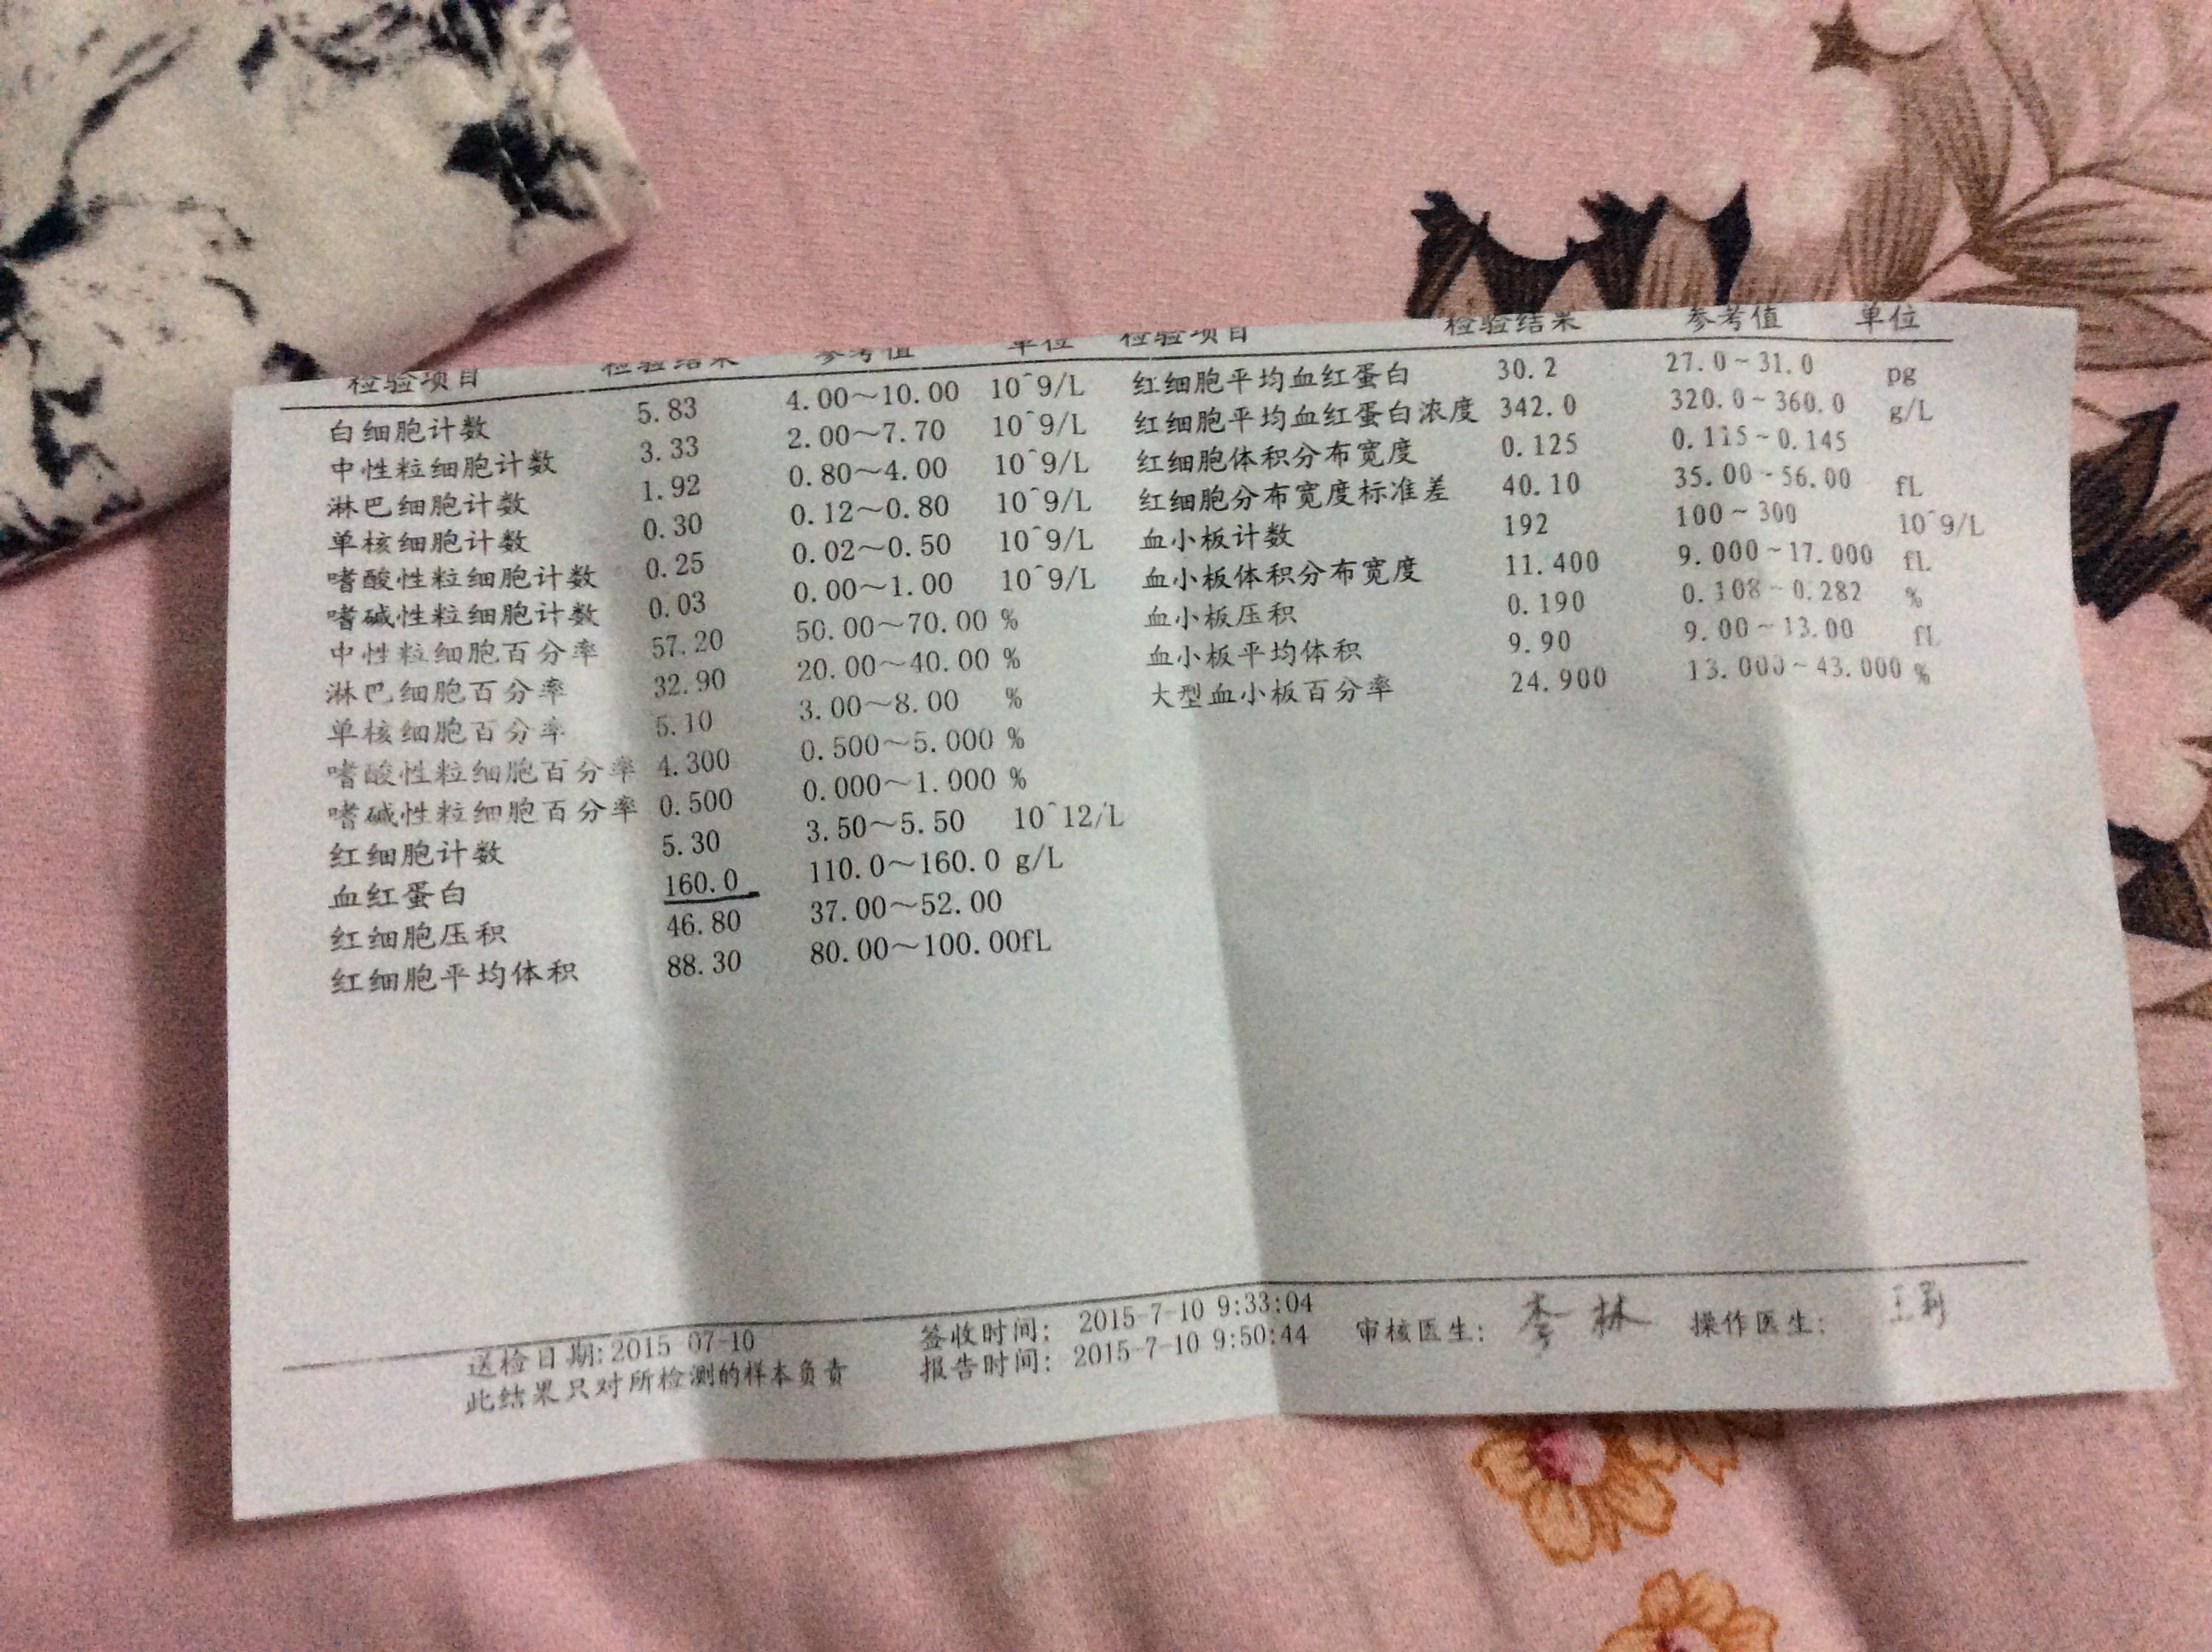 检验项目 检验结果 参考值 单位 检验项目 检验结果 参考值 单位
白细胞计数 5.83 4.00~10.00 10^9/L 红细胞平均血红蛋白 30.2 27.0~31.0 pg
中性粒细胞计数 3.33 2.00~7.70 10^9/L 红细胞平均血红蛋白浓度 342.0 320.0~360.0 g/L
淋巴细胞计数 1.92 0.80~4.00 10^9/L 红细胞体积分布宽度 0.125 0.115~0.145
单核细胞计数 0.30 0.12~0.80 10^9/L 红细胞分布宽度标准差 40.10 35.00~56.00 fL
嗜酸性粒细胞计数 0.25 0.02~0.50 10^9/L 血小板计数 192 100~300 10^9/L
嗜碱性粒细胞计数 0.03 0.00~1.00 10^9/L 血小板体积分布宽度 11.400 9.000~17.000 fL
中性粒细胞百分率 57.20 50.00~70.00 % 血小板压积 0.190 0.108~0.282 %
淋巴细胞百分率 32.90 20.00~40.00 % 血小板平均体积 9.90 9.00~13.00 fL
单核细胞百分率 5.10 3.00~8.00 % 大型血小板百分率 24.900 13.000~43.000 %
嗜酸性粒细胞百分率 4.300 0.500~5.000 %
嗜碱性粒细胞百分率 0.500 0.000~1.000 %
红细胞计数 5.30 3.50~5.50 10^12/L
血红蛋白 160.0 110.0~160.0 g/L
红细胞压积 46.80 37.00~52.00
红细胞平均体积 88.30 80.00~100.00fL
送检日期:2015 07-10 签收时间: 2015-7-10 9:33:04 审核医生: 李林 操作医生:
此结果只对所检测的样本负责 报告时间: 2015-7-10 9:50:44